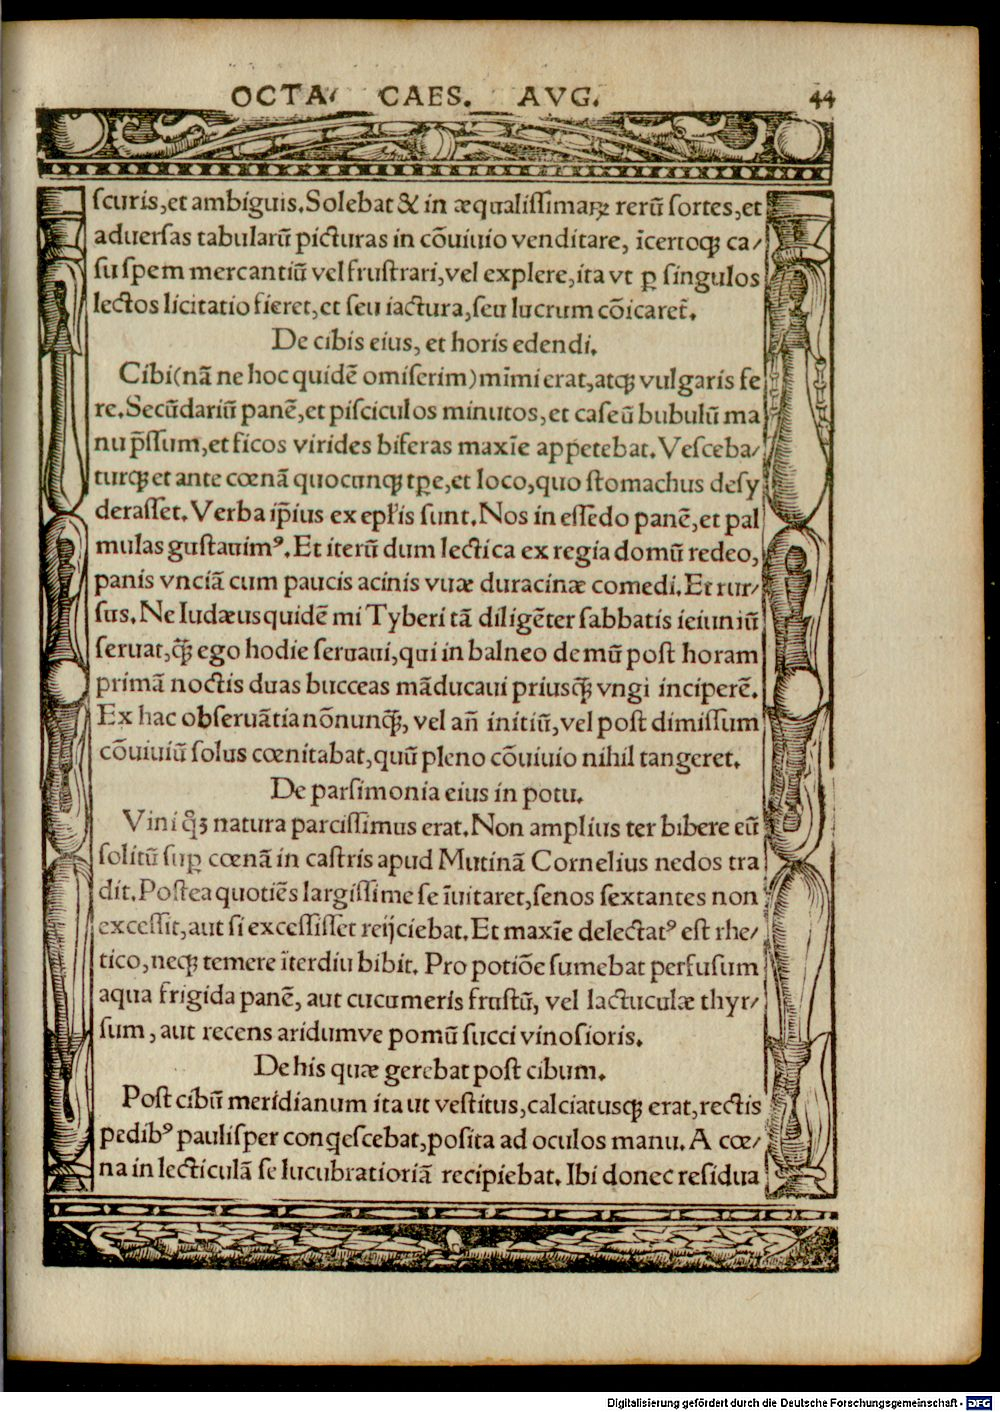 OCTA. CAES. AVG. 44
ſcuris, et ambiguis. Solebat & in æqualiſſimaꝝ rerū ſortes, et
aduerſas tabularū picturas in cōuiuio venditare, īcertoqꝫ ca⸗
ſu ſpem mercantiū vel fruſtrari, vel explere, ita vt ꝑ ſingulos
lectos licitatio fieret, et ſeu iactura, ſeu lucrum cōicaret̄.
De cibis eius, et horis edendi.
Cibi (nā ne hoc quidē omiſerim) mīmi erat, atqꝫ vulgaris fe
re. Secūdariū panē, et piſciculos minutos, et caſeū bubulū ma
nu p̄ſſum, et ficos virides biferas maxīe appetebat. Veſceba⸗
turqꝫ et ante cœnā quocunqꝫ tꝑe, et loco, quo ſtomachus deſy
deraſſet. Verba ip̄ius ex epl̄is ſunt. Nos in eſſedo panē, et pal
mulas guſtauimꝰ. Et iterū dum lectica ex regia domū redeo,
panis vnciā cum paucis acinis vuæ duracinæ comedi. Et rur⸗
ſus. Ne Iudæus quidē mi Tyberi tā diligēter ſabbatis ieiuniū
ſeruat, qꝫ̄ ego hodie ſeruaui, qui in balneo demū poſt horam
primā noctis duas bucceas māducaui priusqꝫ̄ vngi inciperē.
Ex hac obſeruātia nōnunqꝫ̄, vel añ initiū, vel poſt dimiſſum
cōuiuiū ſolus cœnitabat, quū pleno cōuiuio nihil tangeret.
De parſimonia eius in potu.
Vini qͦꝫ natura parciſſimus erat. Non amplius ter bibere eū
ſolitū ſuꝑ cœnā in caſtris apud Mutinā Cornelius nedos tra
dit. Poſtea quotiēs largiſſime ſe īuitaret, ſenos ſextantes non
exceſſit, aut ſi exceſſiſſet reijciebat. Et maxīe delectatꝰ eſt rhe⸗
tico, neqꝫ temere īterdiu bibit. Pro potiōe ſumebat perfuſum
aqua frigida panē, aut cucumeris fruſtū, vel lactuculæ thyr⸗
ſum, aut recens aridumve pomū ſucci vinoſioris.
De his quæ gerebat poſt cibum.
Poſt cibū meridianum ita ut veſtitus, calciatusqꝫ erat, rectis
pedibꝰ pauliſper conq̄eſcebat, poſita ad oculos manu. A cœ⸗
na in lecticulā ſe lucubratioriā recipiebat. Ibi donec reſidua
Digitalisierung gefördert durch die Deutsche Forschungsgemeinschaft - DFG